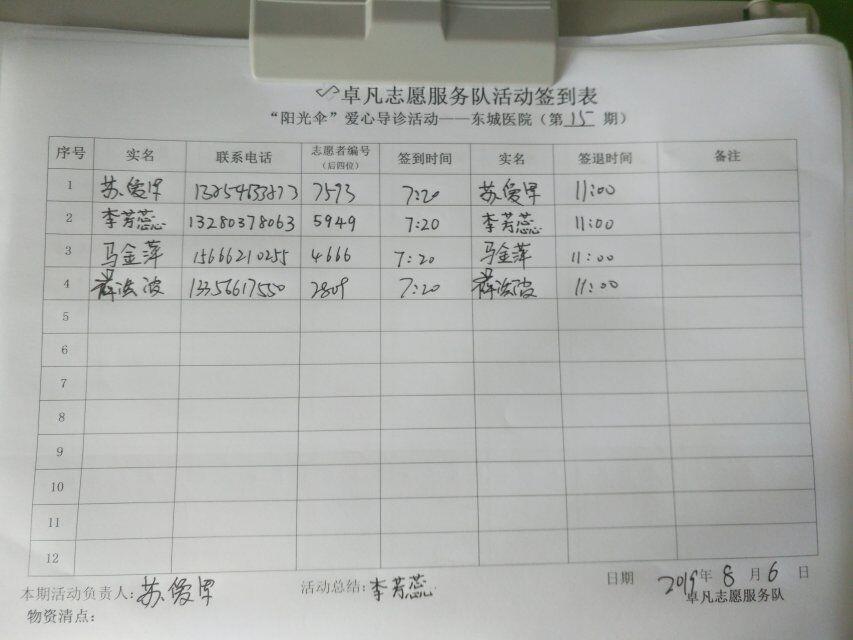 卓凡志愿服务队活动签到表
“阳光伞”爱心导诊活动——东城医院（第 15 期）
序号 实名 联系电话 志愿者编号（后四位） 签到时间 实名 签退时间 备注
1 苏爱军 7573 7:20 苏爱军 11:00
2 李芳蕊 13280378063 5949 7:20 李芳蕊 11:00
3 马金萍 15666210255 4666 7:20 马金萍 11:00
4 13356617550 2809 7:20 11:00
5
6
7
8
9
10
11
12
本期活动负责人：苏爱军 活动总结：李芳蕊 日期 2019年 8 月 6 日
物资清点： 卓凡志愿服务队